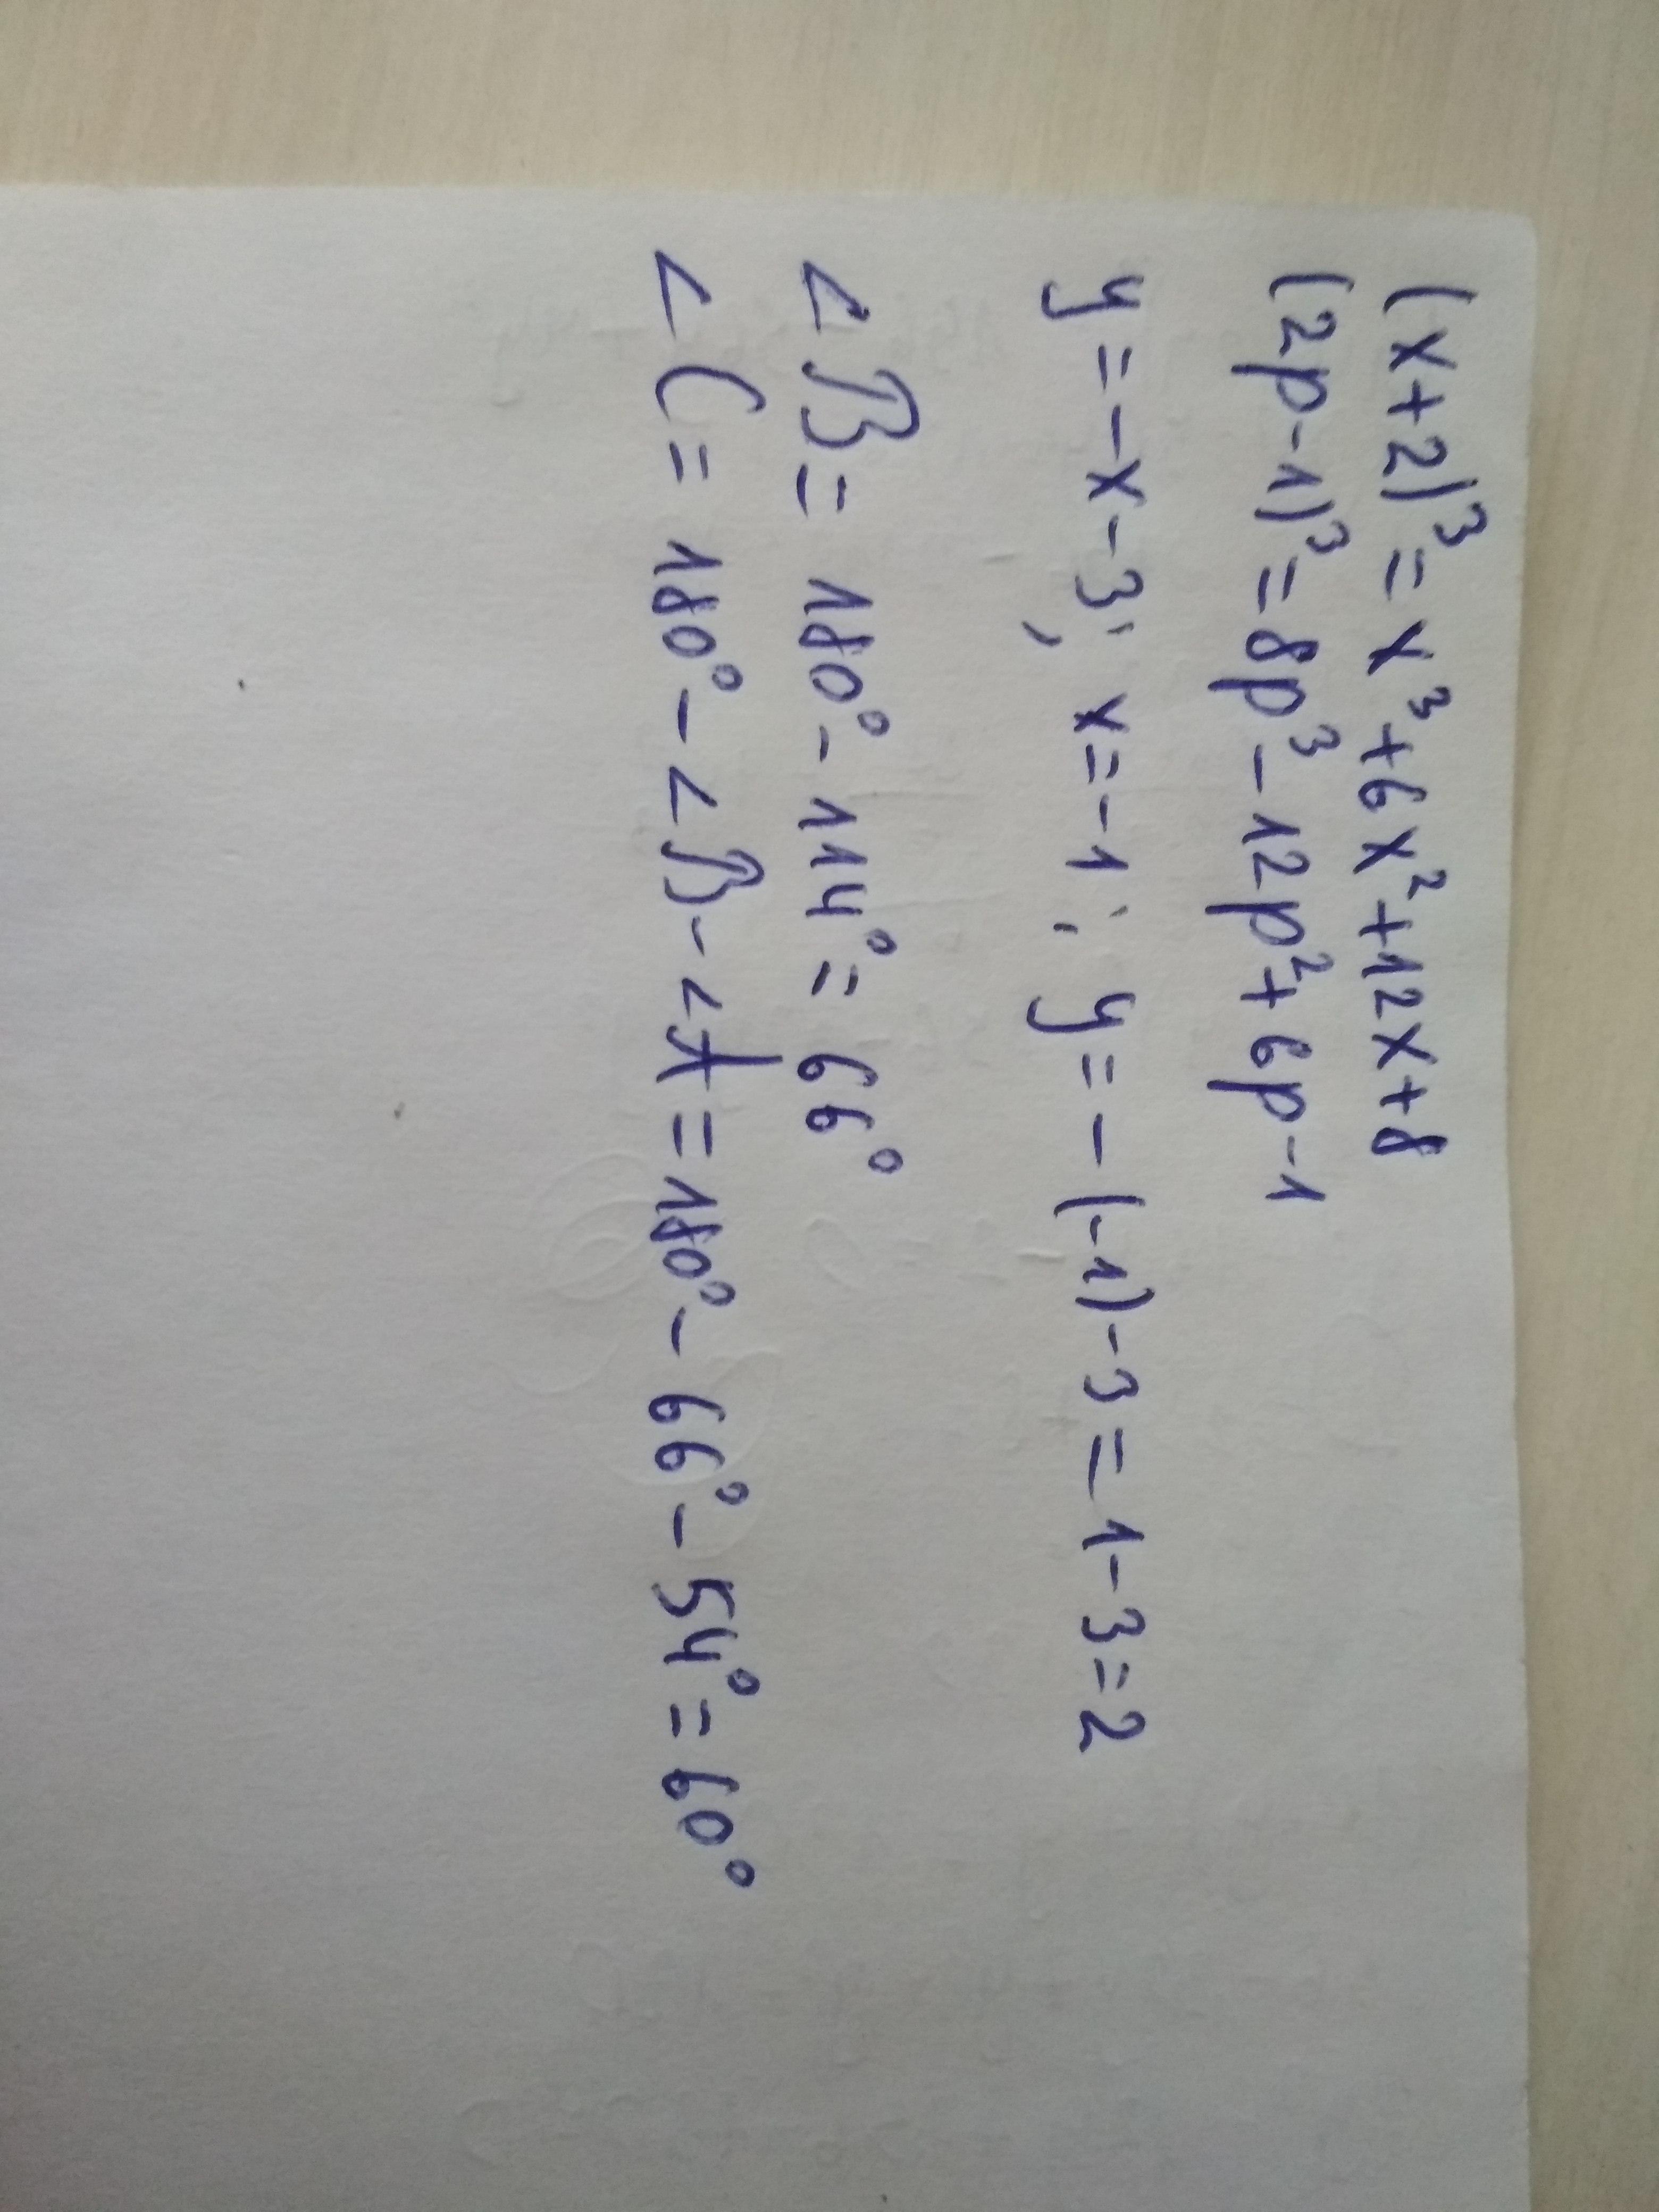 (x+2)³=x³+6x²+12x+8
(2p-1)³=8p³-12p²+6p-1
y=-x-3; x=-1; y=-(-1)-3=1-3=2
∠B=180°-114°=66°
∠C=180°-∠B-∠A=180°-66°-54°=60°